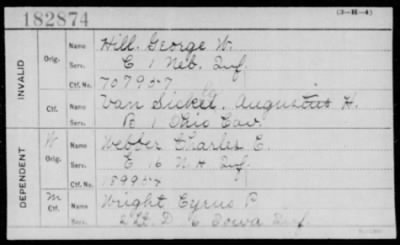 182874
(3-H-4)
INVALID
Orig. Name Hill, George W.
Serv. E 1 Neb. Inf.
Ctf. No. 707957
Ctf. Name Van Sickel, Augustus H.
Serv. B 1 Ohio Cav
DEPENDENT
W Orig. Name Webber Charles E.
Serv. E 16 N.H. Inf.
Ctf. No. 189954
M Ctf. Name Wright Cyrus P.
Serv. 2 Lt. D 6 Iowa Inf.